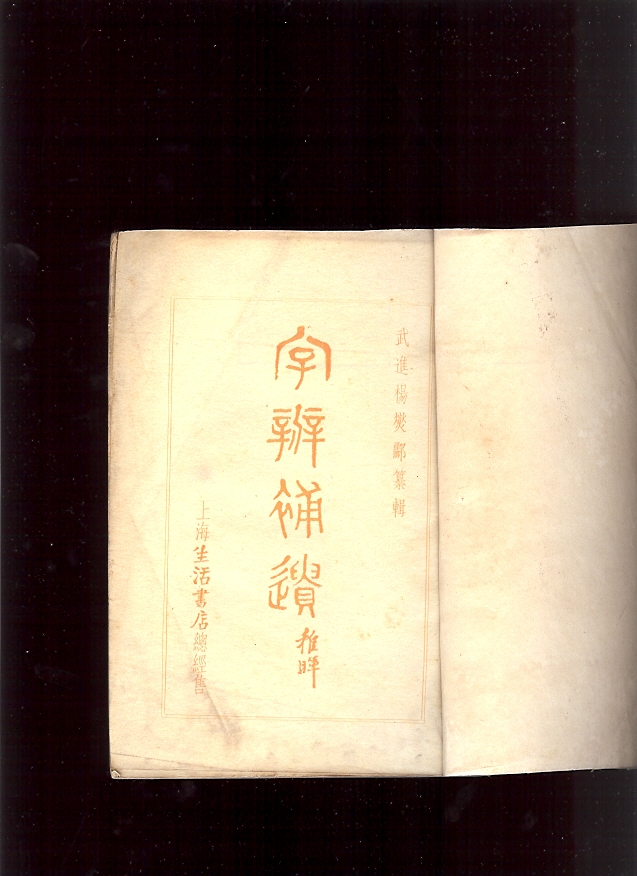 武進楊燮鄰纂輯
字辨補遺
稚暉
上海生活書店總經售